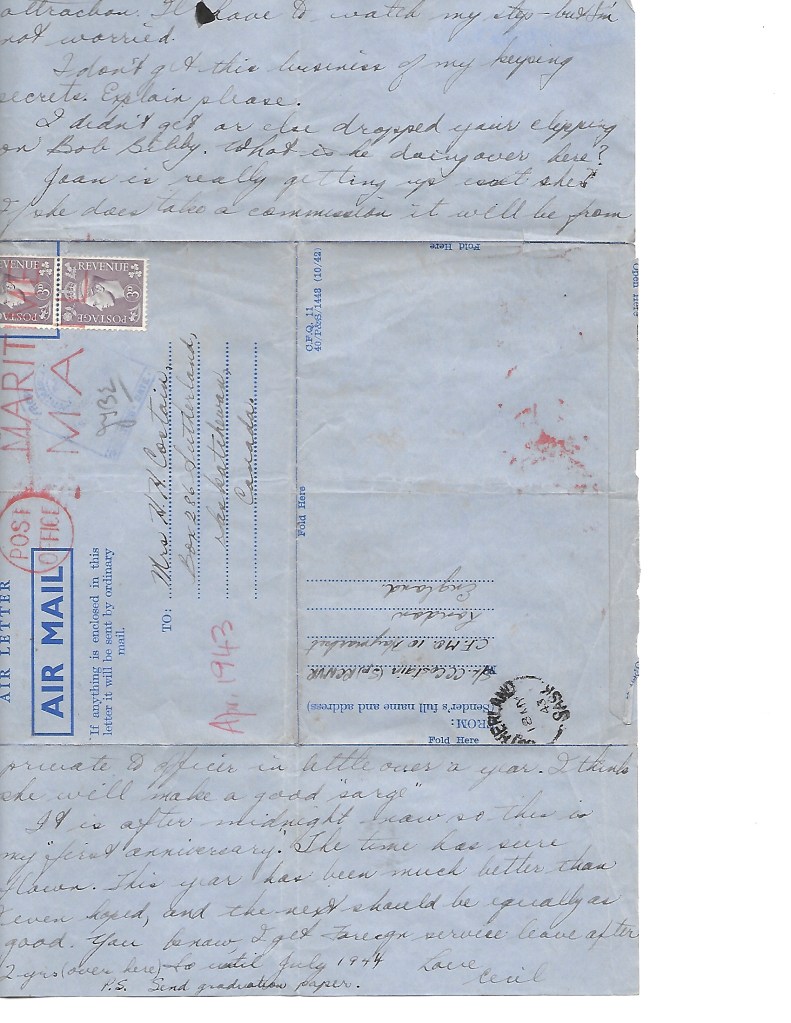 attraction. I'll have to watch my step - but I'm
not worried.
I don't get this business of my keeping
secrets. Explain please.
I didn't get or else dropped your clipping
on Bob. What is he doing over here?
Joan is really getting up isn't she?
If she does take a commission it will be from
REVENUE
REVENUE
POSTAGE
POSTAGE
3D
3D
MARIT
MA
POST OFFICE
AIR LETTER
AIR MAIL
If anything is enclosed in this
letter it will be sent by ordinary
mail.
TO:
Mrs H. H. Costain,
Box 286 Sutherland,
Saskatchewan,
Canada.
Apr. 1943
Fold Here
Open Here
C.F.Q. 11
40/P&S/1448 (10/42)
Fold Here
FROM:
(Sender's full name and address)
Costain
C.F.M.S. 10 Haymarket
London
England.
Fold Here
SUTHERLAND
12 MY
43
SASK
private to officer in little over a year. I think
she will make a good "sarge"
It is after midnight now so this is
my "first anniversary". The time has sure
flown. This year has been much better than
I even hoped, and the next should be equally as
good. You know, I get Foreign service leave after
2 yrs (over here) so until July 1944
Love
Cecil
P.S. Send graduation paper.